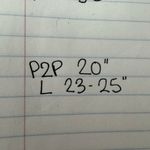 P2P 20"
L 23-25"